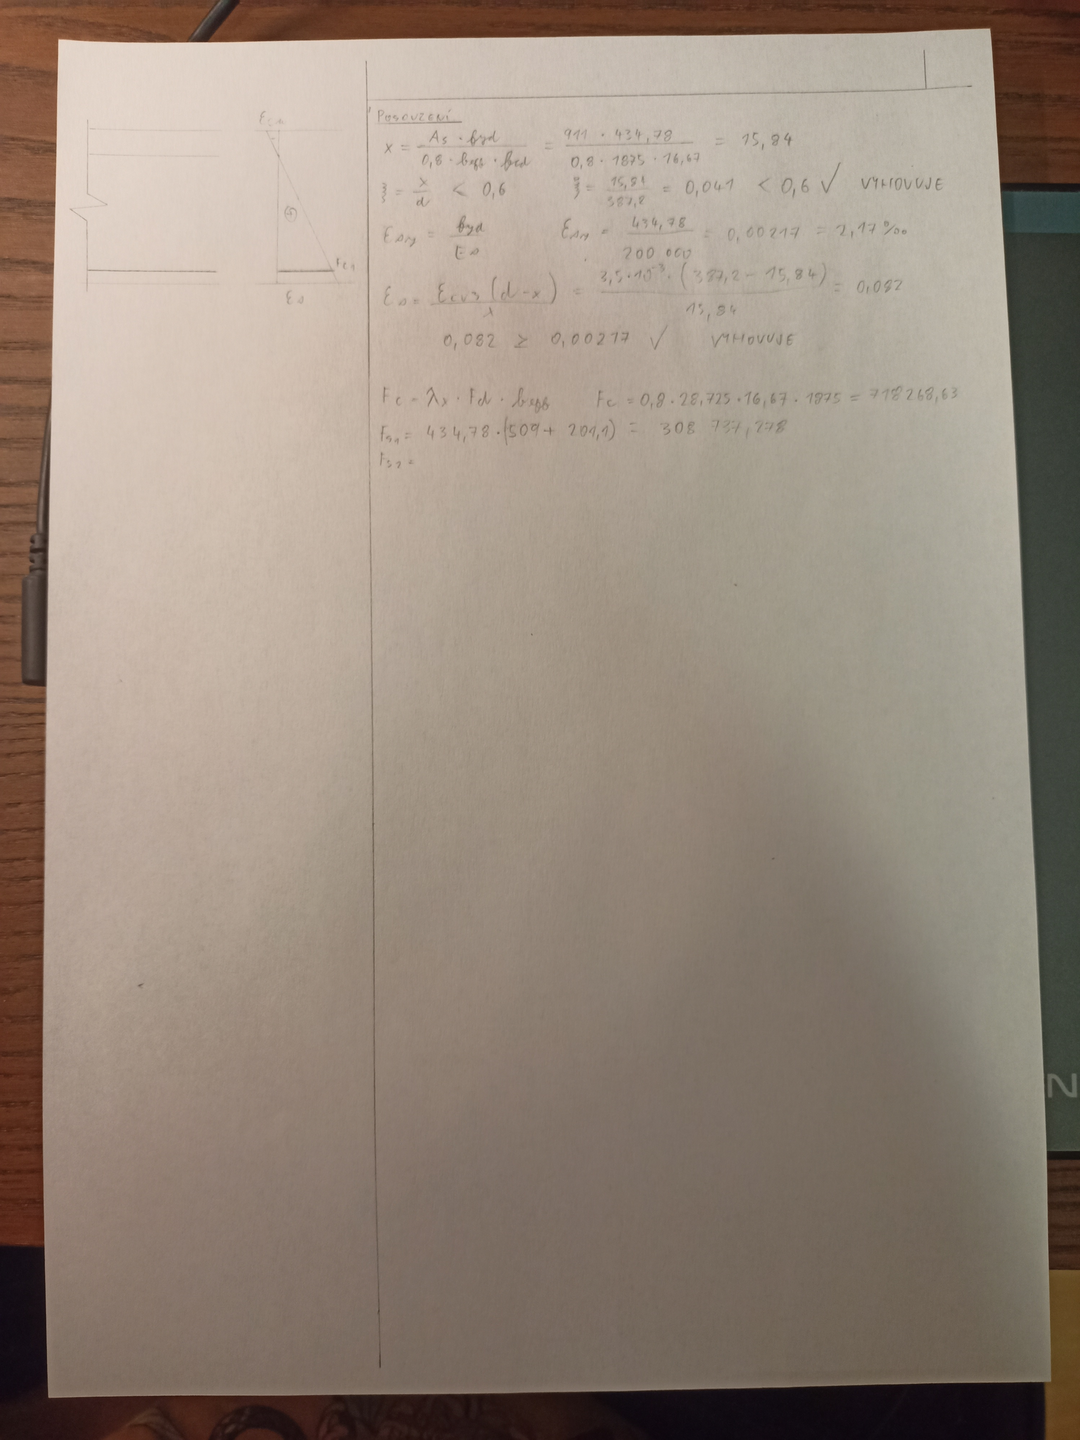 εcu
Fc1
εs
POSOUZENÍ
x = As · fyd / 0,8 · beff · fcd = 911 · 434,78 / 0,8 · 1875 · 16,67 = 15,84
ξ = x/d < 0,6 ξ = 15,84/387,2 = 0,041 < 0,6 ✓ VYHOVUJE
εsy = fyd / Es εsy = 434,78 / 200 000 = 0,00217 = 2,17 ‰
εs = εcu3 (d-x) / x = 3,5·10⁻³ · (387,2 - 15,84) / 15,84 = 0,082
0,082 ≥ 0,00217 ✓ VYHOVUJE
Fc = λx · Fd · beff Fc = 0,8 · 28,725 · 16,67 · 1875 = 718268,63
Fs1 = 434,78 · (509 + 201,1) = 308 737,278
Fs2 =
N